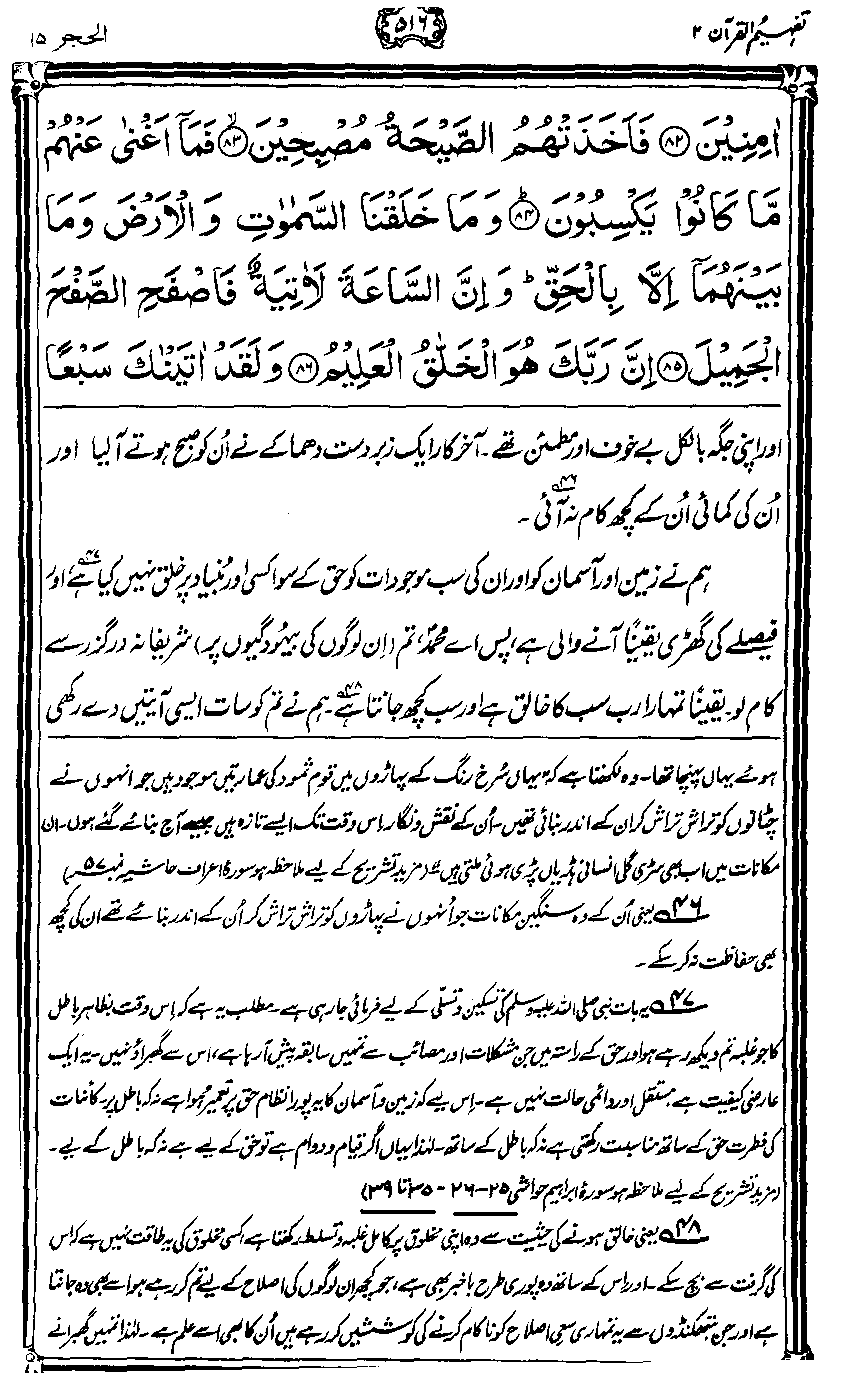 تفہیم القرآن ۲
۵۱۶
الحجر ۱۵
اٰمِنِیْنَ ﴿۸۲﴾ فَاَخَذَتْهُمُ الصَّیْحَةُ مُصْبِحِیْنَ ﴿۸۳﴾ۙ فَمَاۤ اَغْنٰی عَنْهُمْ
مَّا کَانُوْا یَکْسِبُوْنَ ﴿۸۴﴾ؕ وَمَا خَلَقْنَا السَّمٰوٰتِ وَالْاَرْضَ وَمَا
بَیْنَهُمَاۤ اِلَّا بِالْحَقِّ ؕ وَاِنَّ السَّاعَةَ لَاٰتِیَةٌ فَاصْفَحِ الصَّفْحَ
الْجَمِیْلَ ﴿۸۵﴾ اِنَّ رَبَّكَ هُوَ الْخَلّٰقُ الْعَلِیْمُ ﴿۸۶﴾ وَلَقَدْ اٰتَیْنٰكَ سَبْعًا
اور اپنی جگہ بالکل بے خوف اور مطمئن تھے۔ آخرکار ایک زبردست دھماکے نے اُن کو صبح ہوتے آ لیا اور
اُن کی کمائی اُن کے کچھ کام نہ آئی ۴۶۔
ہم نے زمین اور آسمان کو اور ان کی سب موجودات کو حق کے سوا کسی اور بُنیاد پر خلق نہیں کیا ہے ۴۷، اور
فیصلے کی گھڑی یقینًا آنے والی ہے، پس اے محمدؐ، تم (اِن لوگوں کی بیہودگیوں پر) شریفانہ درگزر سے
کام لو۔ یقینًا تمہارا رب سب کا خالق ہے اور سب کچھ جانتا ہے ۴۸۔ ہم نے تم کو سات ایسی آیتیں دے رکھی
ہوئے یہاں پہنچا تھا۔ وہ لکھتا ہے کہ ”یہاں سُرخ رنگ کے پہاڑوں میں قوم ثمود کی عمارتیں موجود ہیں جو انہوں نے
چٹانوں کو تراش تراش کر ان کے اندر بنائی تھیں۔ اُن کے نقش و نگار اِس وقت تک ایسے تازہ ہیں جیسے آج بنائے گئے ہوں۔ ان
مکانات میں اب بھی سڑی گلی انسانی ہڈیاں پڑی ہوئی ملتی ہیں“۔ (مزید تشریح کے لیے ملاحظہ ہو سورۂ اعراف حاشیہ نمبر ۵۷)
۴۶ یعنی اُن کے وہ سنگین مکانات جو اُنہوں نے پہاڑوں کو تراش تراش کر اُن کے اندر بنائے تھے ان کی کچھ
بھی حفاظت نہ کر سکے۔
۴۷ یہ بات نبی صلی اللہ علیہ وسلم کی تسکین و تسلّی کے لیے فرمائی جا رہی ہے۔ مطلب یہ ہے کہ اِس وقت بظاہر باطل
کا جو غلبہ تم دیکھ رہے ہو اور حق کے راستہ میں جن مشکلات اور مصائب سے تمہیں سابقہ پیش آ رہا ہے، اس سے گھبراؤ نہیں۔ یہ ایک
عارضی کیفیت ہے، مستقل اور دائمی حالت نہیں ہے۔ اِس لیے کہ زمین و آسمان کا یہ پورا نظام حق پر تعمیر ہوا ہے نہ کہ باطل پر۔ کائنات
کی فطرت حق کے ساتھ مناسبت رکھتی ہے نہ کہ باطل کے ساتھ۔ لہٰذا یہاں اگر قیام و دوام ہے تو حق کے لیے ہے نہ کہ باطل کے لیے۔
(مزید تشریح کے لیے ملاحظہ ہو سورۂ ابراہیم حواشی ۲۵-۲۶-۳۵ تا ۳۹)
۴۸ یعنی خالق ہونے کی حیثیت سے وہ اپنی مخلوق پر کامل غلبہ و تسلط رکھتا ہے، کسی مخلوق کی یہ طاقت نہیں ہے کہ اس
کی گرفت سے بچ سکے۔ اور اس کے ساتھ وہ پوری طرح باخبر بھی ہے، جو کچھ ان لوگوں کی اصلاح کے لیے تم کر رہے ہو اسے بھی وہ جانتا
ہے اور جن ہتھکنڈوں سے یہ تمہاری سعی اصلاح کو ناکام کرنے کی کوششیں کر رہے ہیں اُن کا بھی اسے علم ہے۔ لہٰذا تمہیں گھبرانے